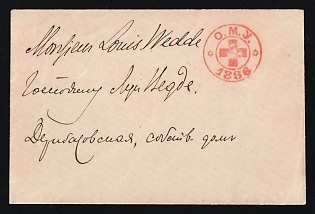 Monsieur Louis Wedde
О.М.У.
1886
Господину Луи Ведде.
Дерибасовская, собств. домъ